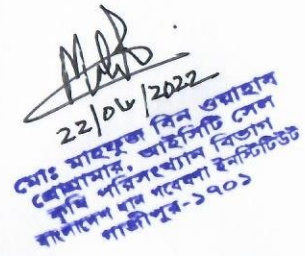 22/06/2022
মোঃ মাহফুজ বিন ওয়াহাব
প্রোগ্রামার, আইসিটি সেল
কৃষি পরিসংখ্যান বিভাগ
বাংলাদেশ ধান গবেষণা ইনস্টিটিউট
গাজীপুর-১৭০১